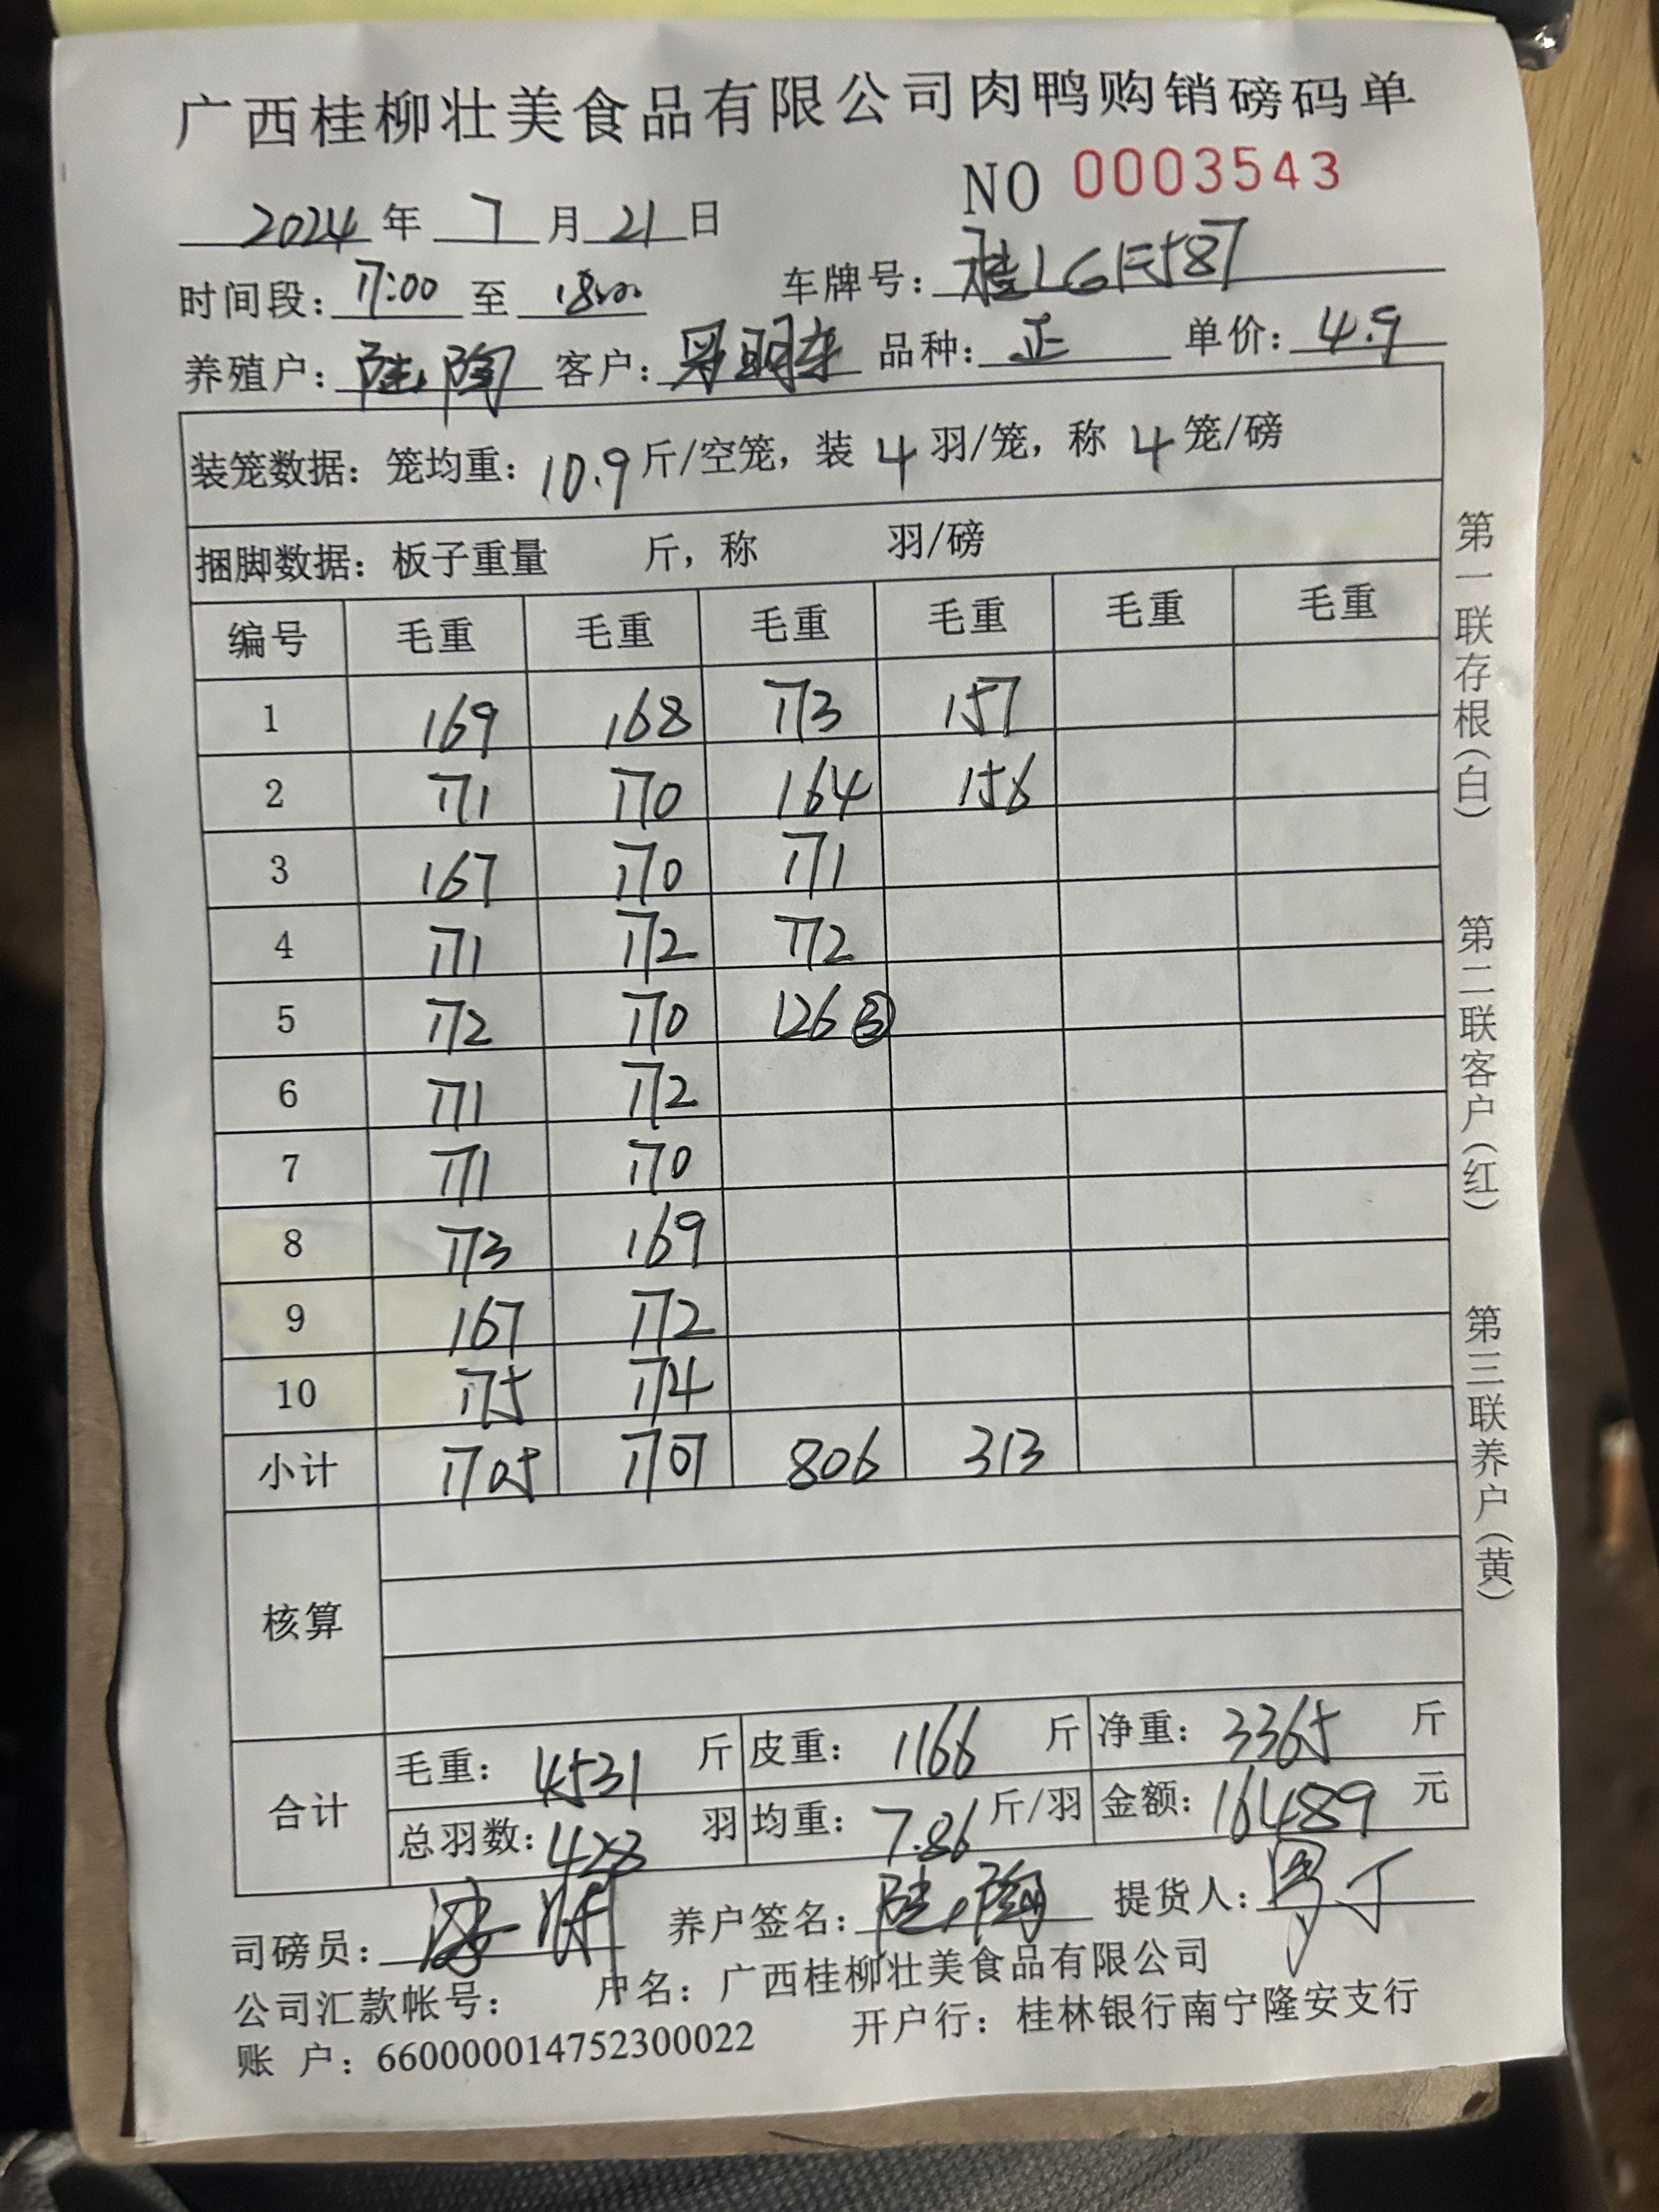 广西桂柳壮美食品有限公司肉鸭购销磅码单
NO 0003543
2024年 7月21日
时间段：17:00 至 18:00 车牌号：桂LGF587
养殖户：陆陶 客户：明东 品种：正 单价：4.9
装笼数据：笼均重：10.9斤/空笼，装 4 羽/笼，称 4 笼/磅
捆脚数据：板子重量 斤，称 羽/磅
编号 毛重 毛重 毛重 毛重 毛重 毛重
1 169 168 173 157
2 171 170 164 156
3 167 170 171
4 171 172 172
5 172 170 126 ③
6 171 172
7 171 170
8 173 169
9 167 172
10 175 174
小计 1705 1707 806 313
核算
合计
毛重：4531 斤 皮重：1166 斤 净重：3365 斤
总羽数：428 羽 均重：7.86 斤/羽 金额：16489 元
司磅员： 养户签名：陆陶 提货人：
公司汇款帐号： 户名：广西桂柳壮美食品有限公司
账 户：660000014752300022 开户行：桂林银行南宁隆安支行
第一联存根（白）
第二联客户（红）
第三联养户（黄）